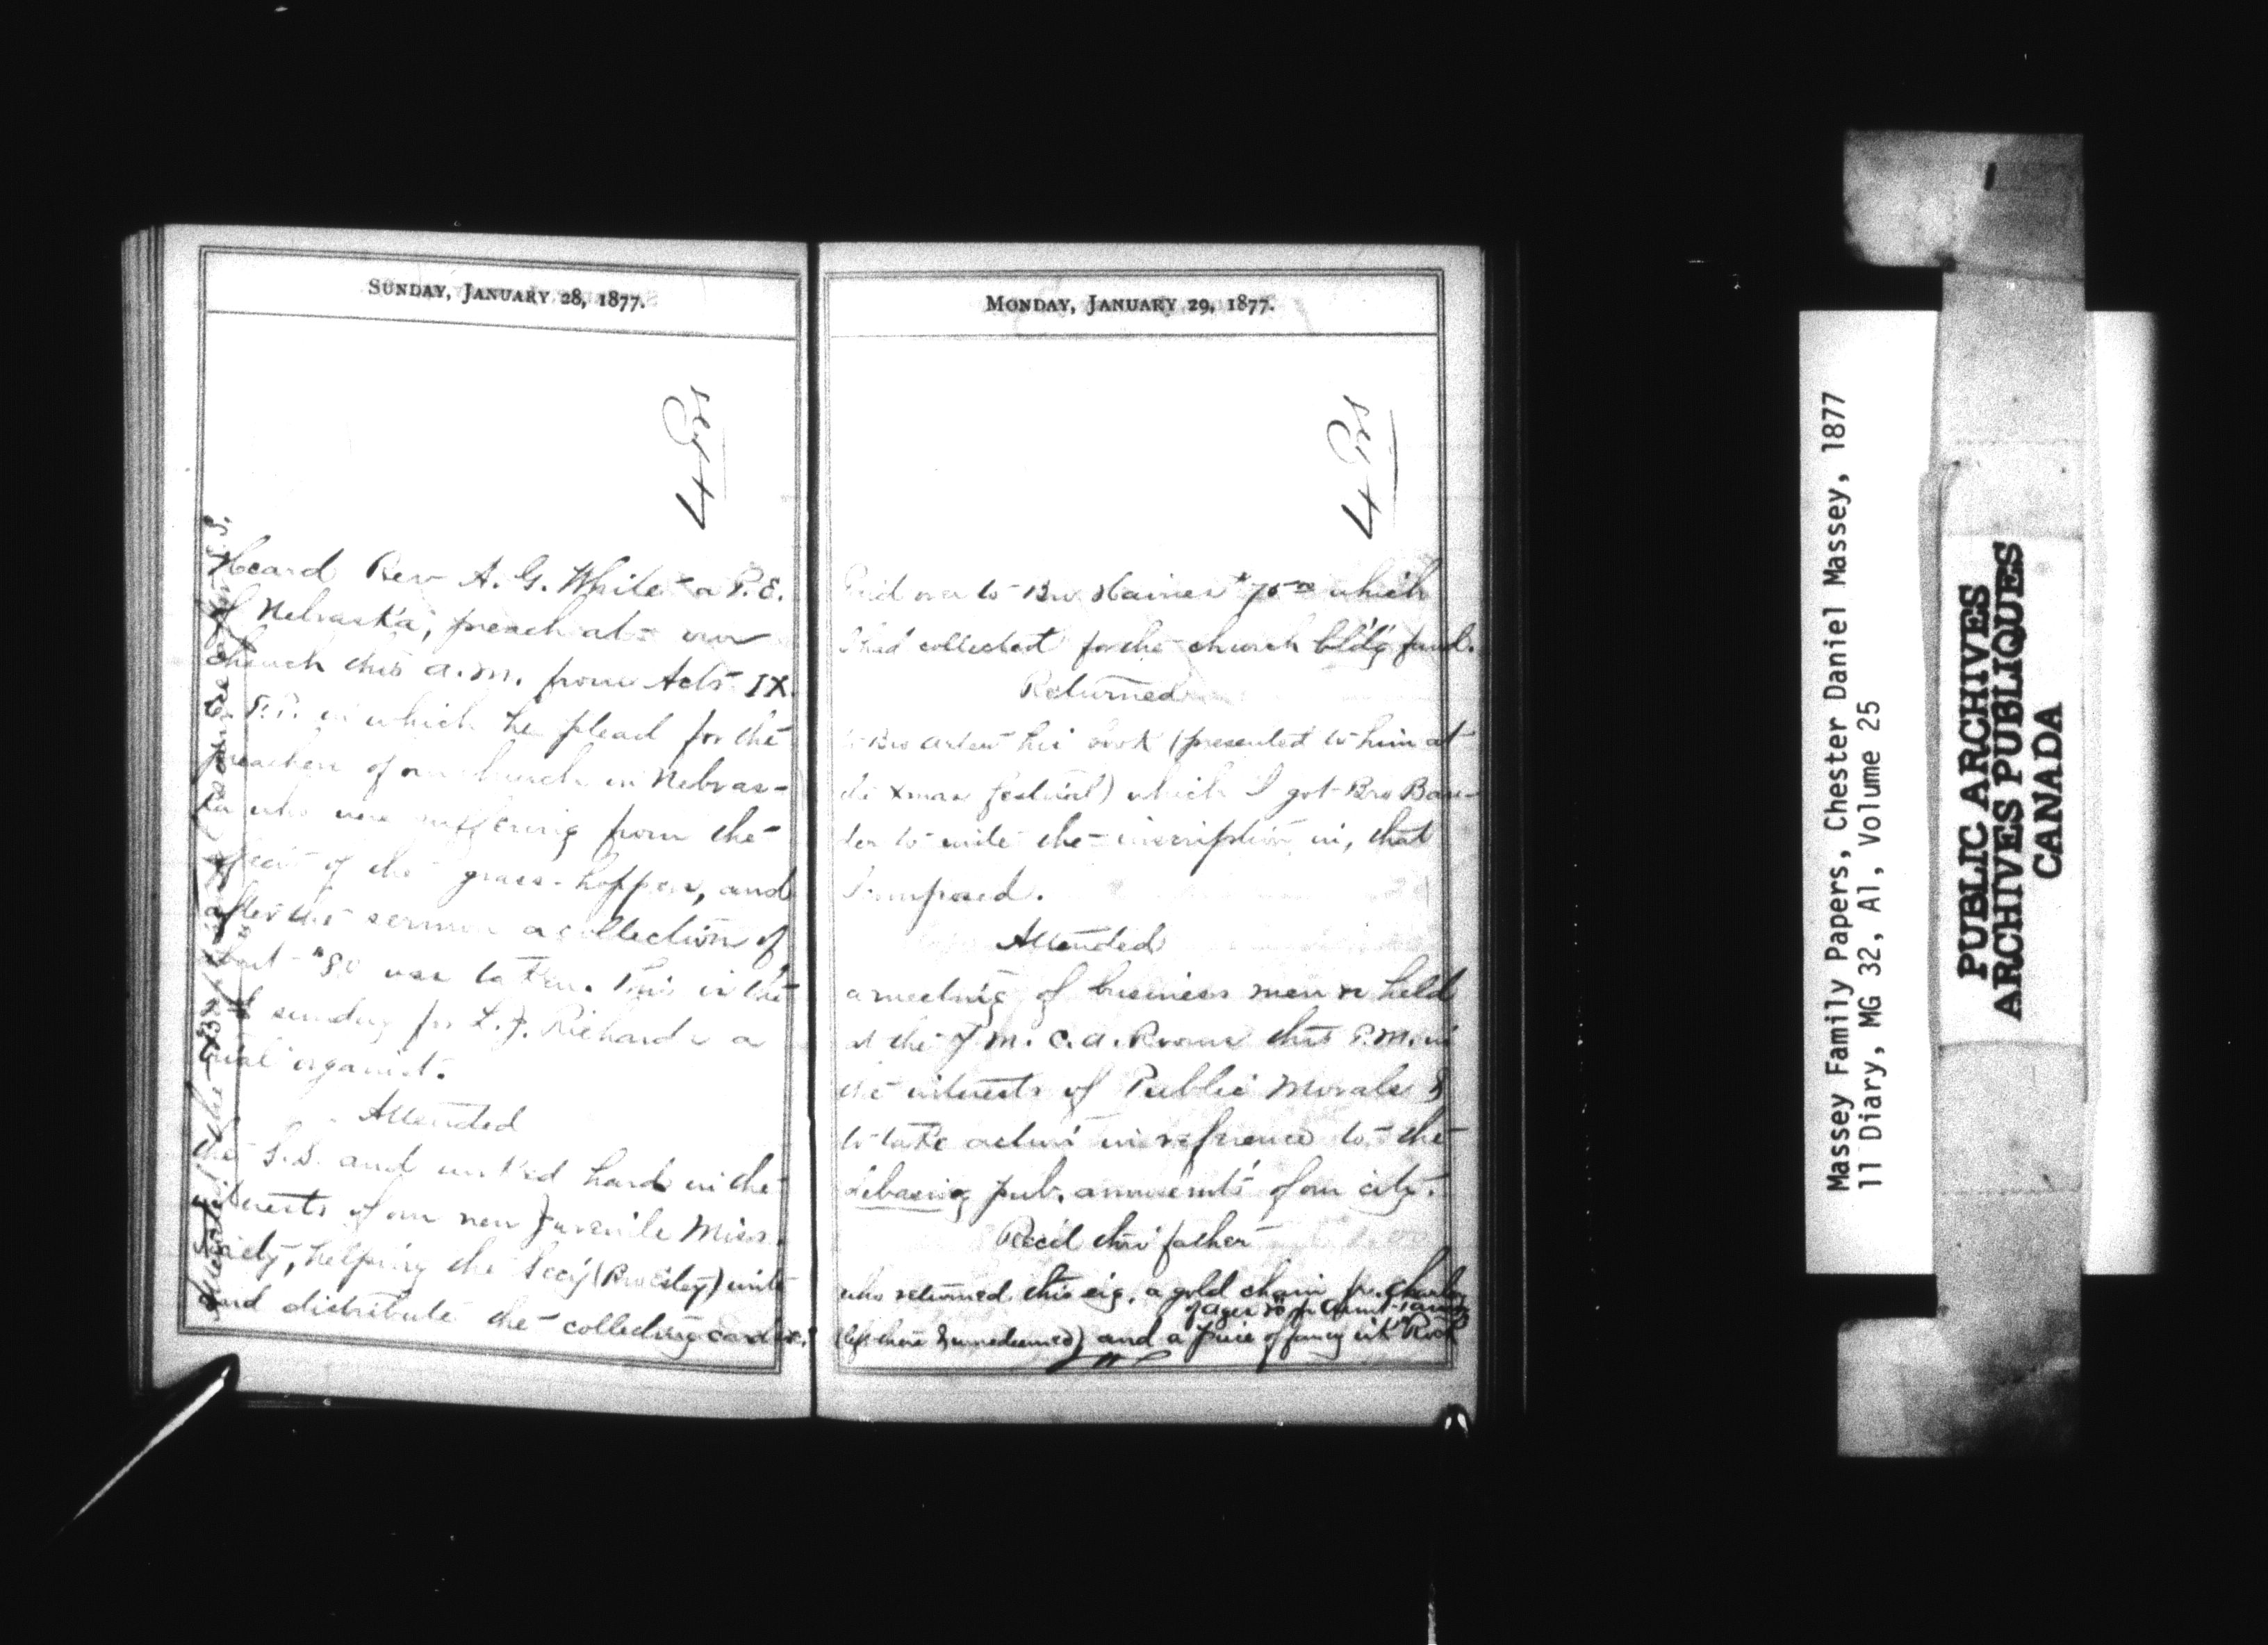 SUNDAY, JANUARY 28, 1877.
4 Prs
Heard Rev A. G. White a P.E.
of Nebraska, preach at our
church this a.m. from Acts IX.
in which he plead for the
preachers of our church in Nebras-
ka who were suffering from the
effects of the grass-hoppers, and
after the sermon a collection of
about $80 was taken. This is the
sunday for L. J. Richards a
trial organist.
Attended
the S.S. and worked hard in the
interests of our new Juvenile Miss.
Society, helping the Secy write
and distribute the collecting cards
Attended the
MONDAY, JANUARY 29, 1877.
4 Prs
Paid over to Bro Haines $75 which
I had collected for the church bldg fund.
Returned
to Bro his book (presented to him at
the Xmas festival) which I got Bro
to write the inscription in, that
I composed.
Attended
a meeting of business men held
at the Y.M.C.A. Rooms this P.M. in
the interests of Public Morals &
to take action in reference to the
debasing pub. amusemts of our city.
Recd thro' father
who returned this eig, a gold chain fr. Charley
(left there & unredeemed) and a piece of fancy
Massey Family Papers, Chester Daniel Massey, 1877
11 Diary, MG 32, A1, Volume 25
PUBLIC ARCHIVES
ARCHIVES PUBLIQUES
CANADA